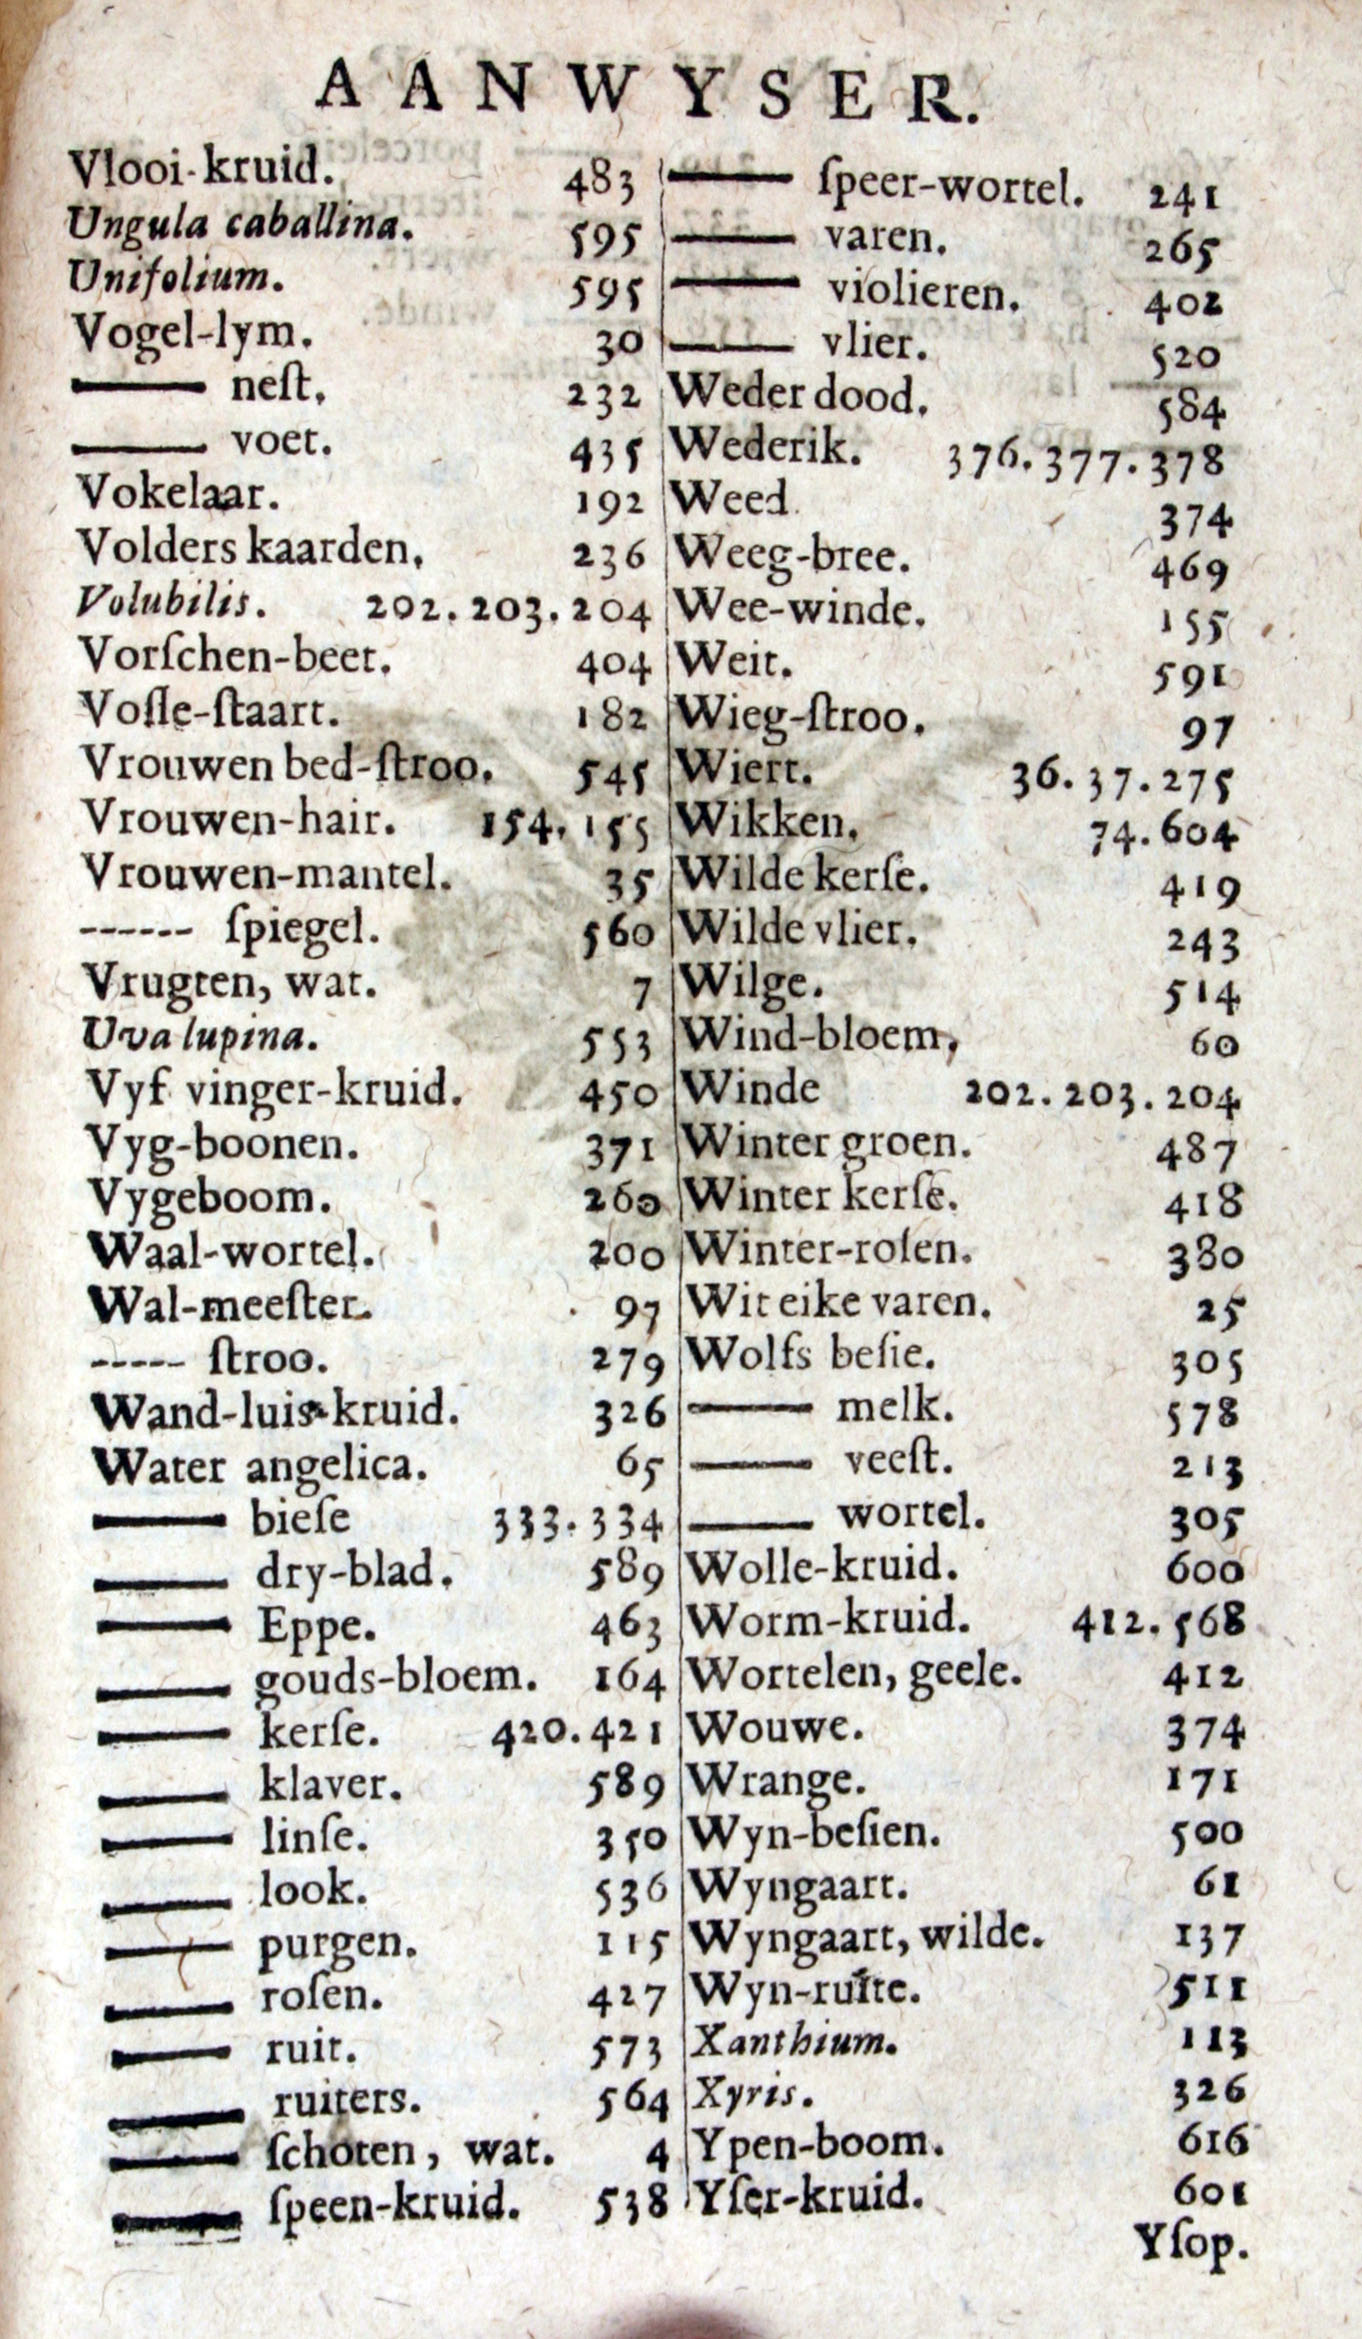 AANWYSER.
Vlooi-kruid. 483
Ungula caballina. 595
Unifolium. 595
Vogel-lym. 30
—— neſt. 232
—— voet. 435
Vokelaar. 192
Volders kaarden. 236
Volubilis. 202. 203. 204
Vorſchen-beet. 404
Voſſe-ſtaart. 182
Vrouwen bed-ſtroo. 545
Vrouwen-hair. 154. 155
Vrouwen-mantel. 35
------ ſpiegel. 560
Vrugten, wat. 7
Uva lupina. 553
Vyf vinger-kruid. 450
Vyg-boonen. 371
Vygeboom. 260
Waal-wortel. 200
Wal-meeſter. 97
----- ſtroo. 279
Wand-luis-kruid. 326
Water angelica. 65
—— bieſe 333. 334
—— dry-blad. 589
—— Eppe. 463
—— gouds-bloem. 164
—— kerſe. 420. 421
—— klaver. 589
—— linſe. 350
—— look. 536
—— purgen. 115
—— roſen. 427
—— ruit. 573
—— ruiters. 564
—— ſchoten, wat. 4
—— ſpeen-kruid. 538
—— ſpeer-wortel. 241
—— varen. 265
—— violieren. 402
—— vlier. 520
Weder dood. 584
Wederik. 376. 377. 378
Weed. 374
Weeg-bree. 469
Wee-winde. 155
Weit. 591
Wieg-ſtroo. 97
Wiert. 36. 37. 275
Wikken. 74. 604
Wilde kerſe. 419
Wilde vlier. 243
Wilge. 514
Wind-bloem, 60
Winde 202. 203. 204
Winter groen. 487
Winter kerſe. 418
Winter-roſen. 380
Wit eike varen. 25
Wolfs beſie. 305
—— melk. 578
—— veeſt. 213
—— wortel. 305
Wolle-kruid. 600
Worm-kruid. 412. 568
Wortelen, geele. 412
Wouwe. 374
Wrange. 171
Wyn-beſien. 500
Wyngaart. 61
Wyngaart, wilde. 137
Wyn-ruite. 511
Xanthium. 113
Xyris. 326
Ypen-boom. 616
Yſer-kruid. 601
Yſop.